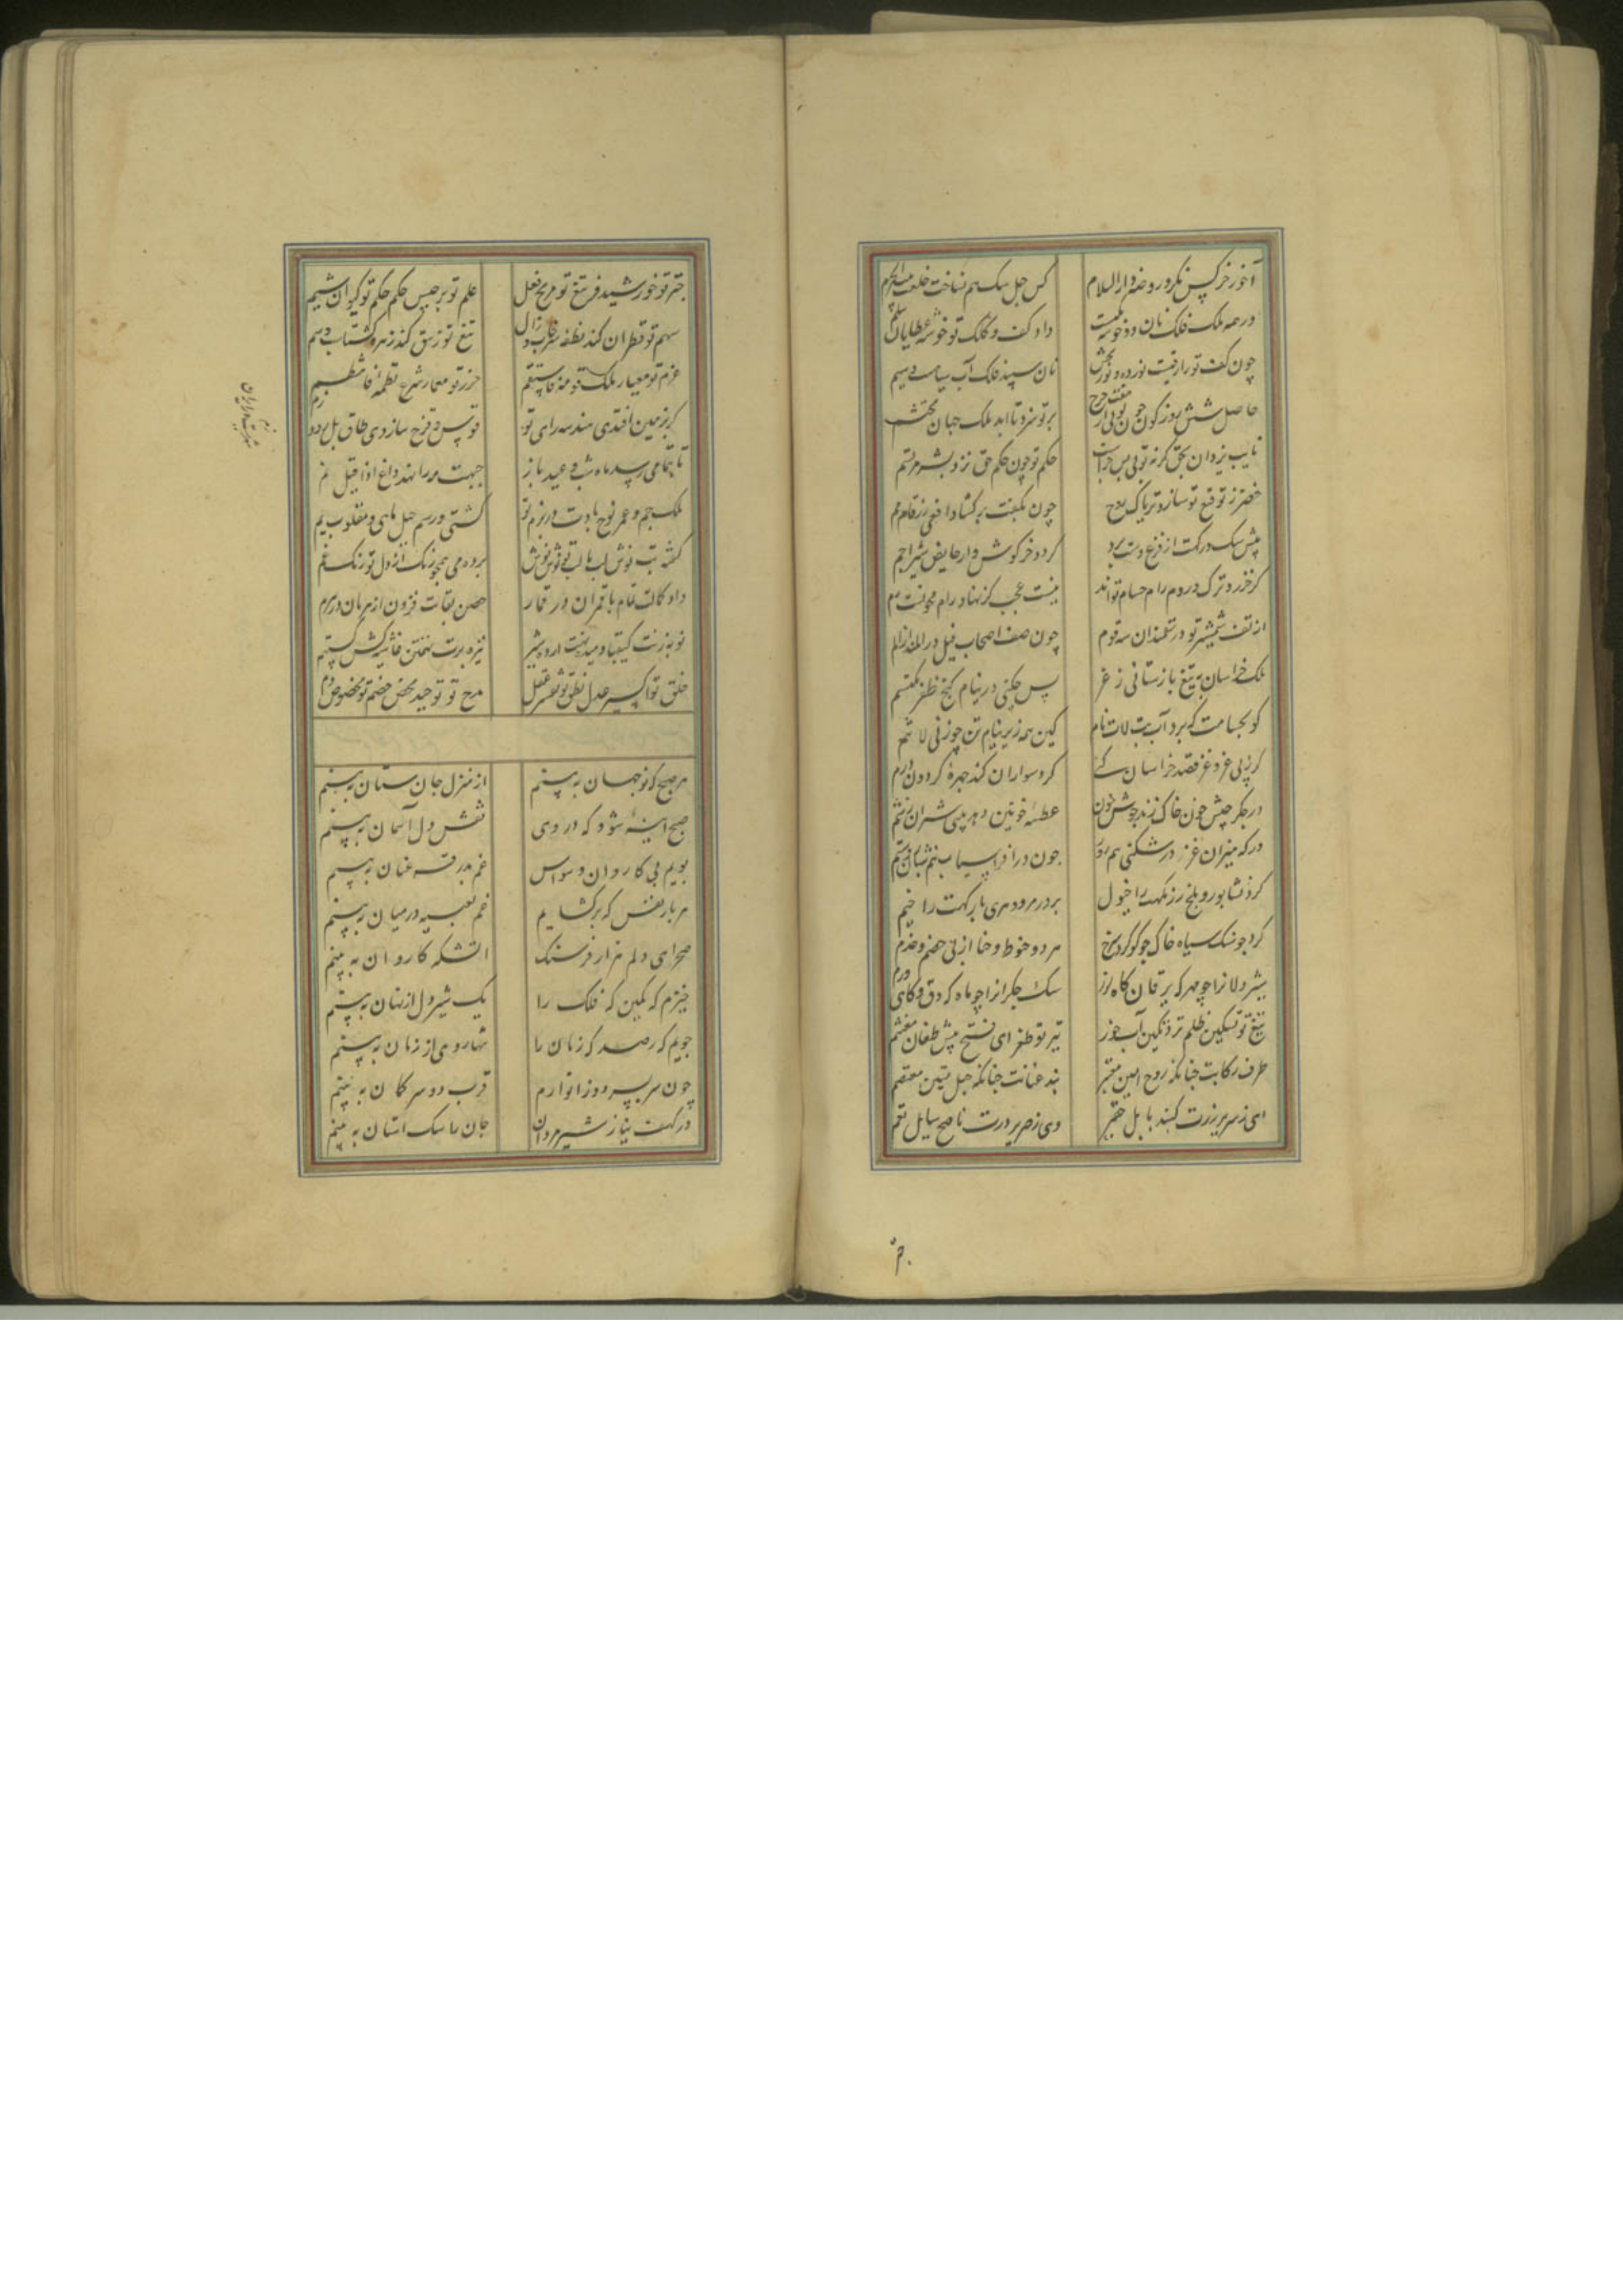 آخور خر کس نکرد روضه دارالسلام
کس جل سک هم نساخت خلعت بیت الحرم
در همه ملک فلک نان دو خوشه است
داد کف و کلک تو خوشه عطایا
چون کف تو رازقیست نوزده و نور بخش
نان سپید فلک آب سیاهست و سیم
حاصل شش روز کون چون تویی از هفت چرخ
بر تو سزد تا ابد ملک جهان محتشم
نایب یزدان بحق گرنه تویی پس چراست
حکم تو چون حکم حق نزد بشر مرتسم
خضر ز توقیع تو سازد تریاک روح
چون بکفت برکشاد افعی زرفام فم
پیش سک درکهت از فزع دست برد
گردد خرکوش وار حایض شیر اجم
کر خزر و ترک و روم رام حسام تواند
نیست عجب کز نهاد رام فحولست رم
از تف شمشیر تو در تلمذان سه قوم
چون صف اصحاب فیل در الم اند از الم
ملک خراسان به تیغ بازستانی ز غز
پس چکنی در نیام کنج ظفر مکتتم
کو بجسامت که برد آب بت لات نام
کین همه زیر نیام تن چو زنی لا شم
کر پی غزو غز قصد خراسان کنی
کرد سواران کند چهره گردون دژم
در جکر جیش خون خاک زند جوش خون
عطسه خونین دهد بینی شیران ز شم
در که میزان غز درشکنی هم برو
چون در افراسیاب نیم شبان روستم
کرد نشابور و بلخ رزمکهت را خیول
بر در مرو و هری بارکهت را خیم
کرد چو سنک سیاه خاک چو کوکرد سرخ
هر دو خوط و خا از پی خصم و خدم
شیر دلانرا چو مهر که یرقان کاه لرز
سک جکرانرا چو ماه که دق و کاهی ورم
تیغ تو تسکین ظلم تر ز تکین آب خور
تیر تو طغرای فتح پیش طغان محتشم
طرف رکابت چنانکه روح امین معتبر
بند عنانت چنانکه حبل متین معتصم
ای ز سریر زرت کنبد بابل حقیر
وی ز صریر درت ناصح سایل نعم
چتر تو خورشید فر تیغ تو مریخ فعل
علم تو برجیس حکم حکم تو کیوان شیم
سهم تو قطران کند نطفه سرخاب و زال
تیغ تو زیبق کند زهره کشتاسب و سم
عزم تو معیار ملک قومه فاستقم
حزر تو معمار شرع نظمه فانتظم
کر بزمین افتدی هندسه رای تو
قوس و قزح سازدی طاق پل رود زم
تا بتمامی رسد ماه شب عید باز
جبهت مه را نهد داغ اذا قیل تم
ملک جم و عمر نوح بادت و در بزم تو
کشتی و رسم جبل ماهی و مقلوب یم
کفته بت نوش لب با لب تو نوش نوش
برده می همچو زنک از دل تو زنک غم
داد کمالت تمام با قمران در قمار
حصن بقات فزون از هرمان در هرم
نوبه زنت کیقباد میده نهت اردشیر
نیزه برت تهمتن غاشیه کش کستهم
خلق تو اکسیر عدل نطق تو تفسیر عقل
مدح تو توحید محض خصم تو مخصوص ذم
هر صبح که نو جهان ببینم
از منزل جان نشان ببینم
صبح آینه شود که در وی
نقش دل آسمان ببینم
بویم پی کاروان وسواس
غم بدرقه عنان ببینم
هر بار نفس که برکشایم
غم تعبیه در میان ببینم
صحرای دلم هزار فرسنک
آتشکه کاروان ببینم
خیزم که کمین که فلک را
یک شیردل از نهان ببینم
جویم که رصد که زمان را
تنها روی از زمان ببینم
چون سر بسر دو زانو آرم
قرب دو سر کمان ببینم
در کهف نیاز شیرمردان
جان را سک آستان ببینم